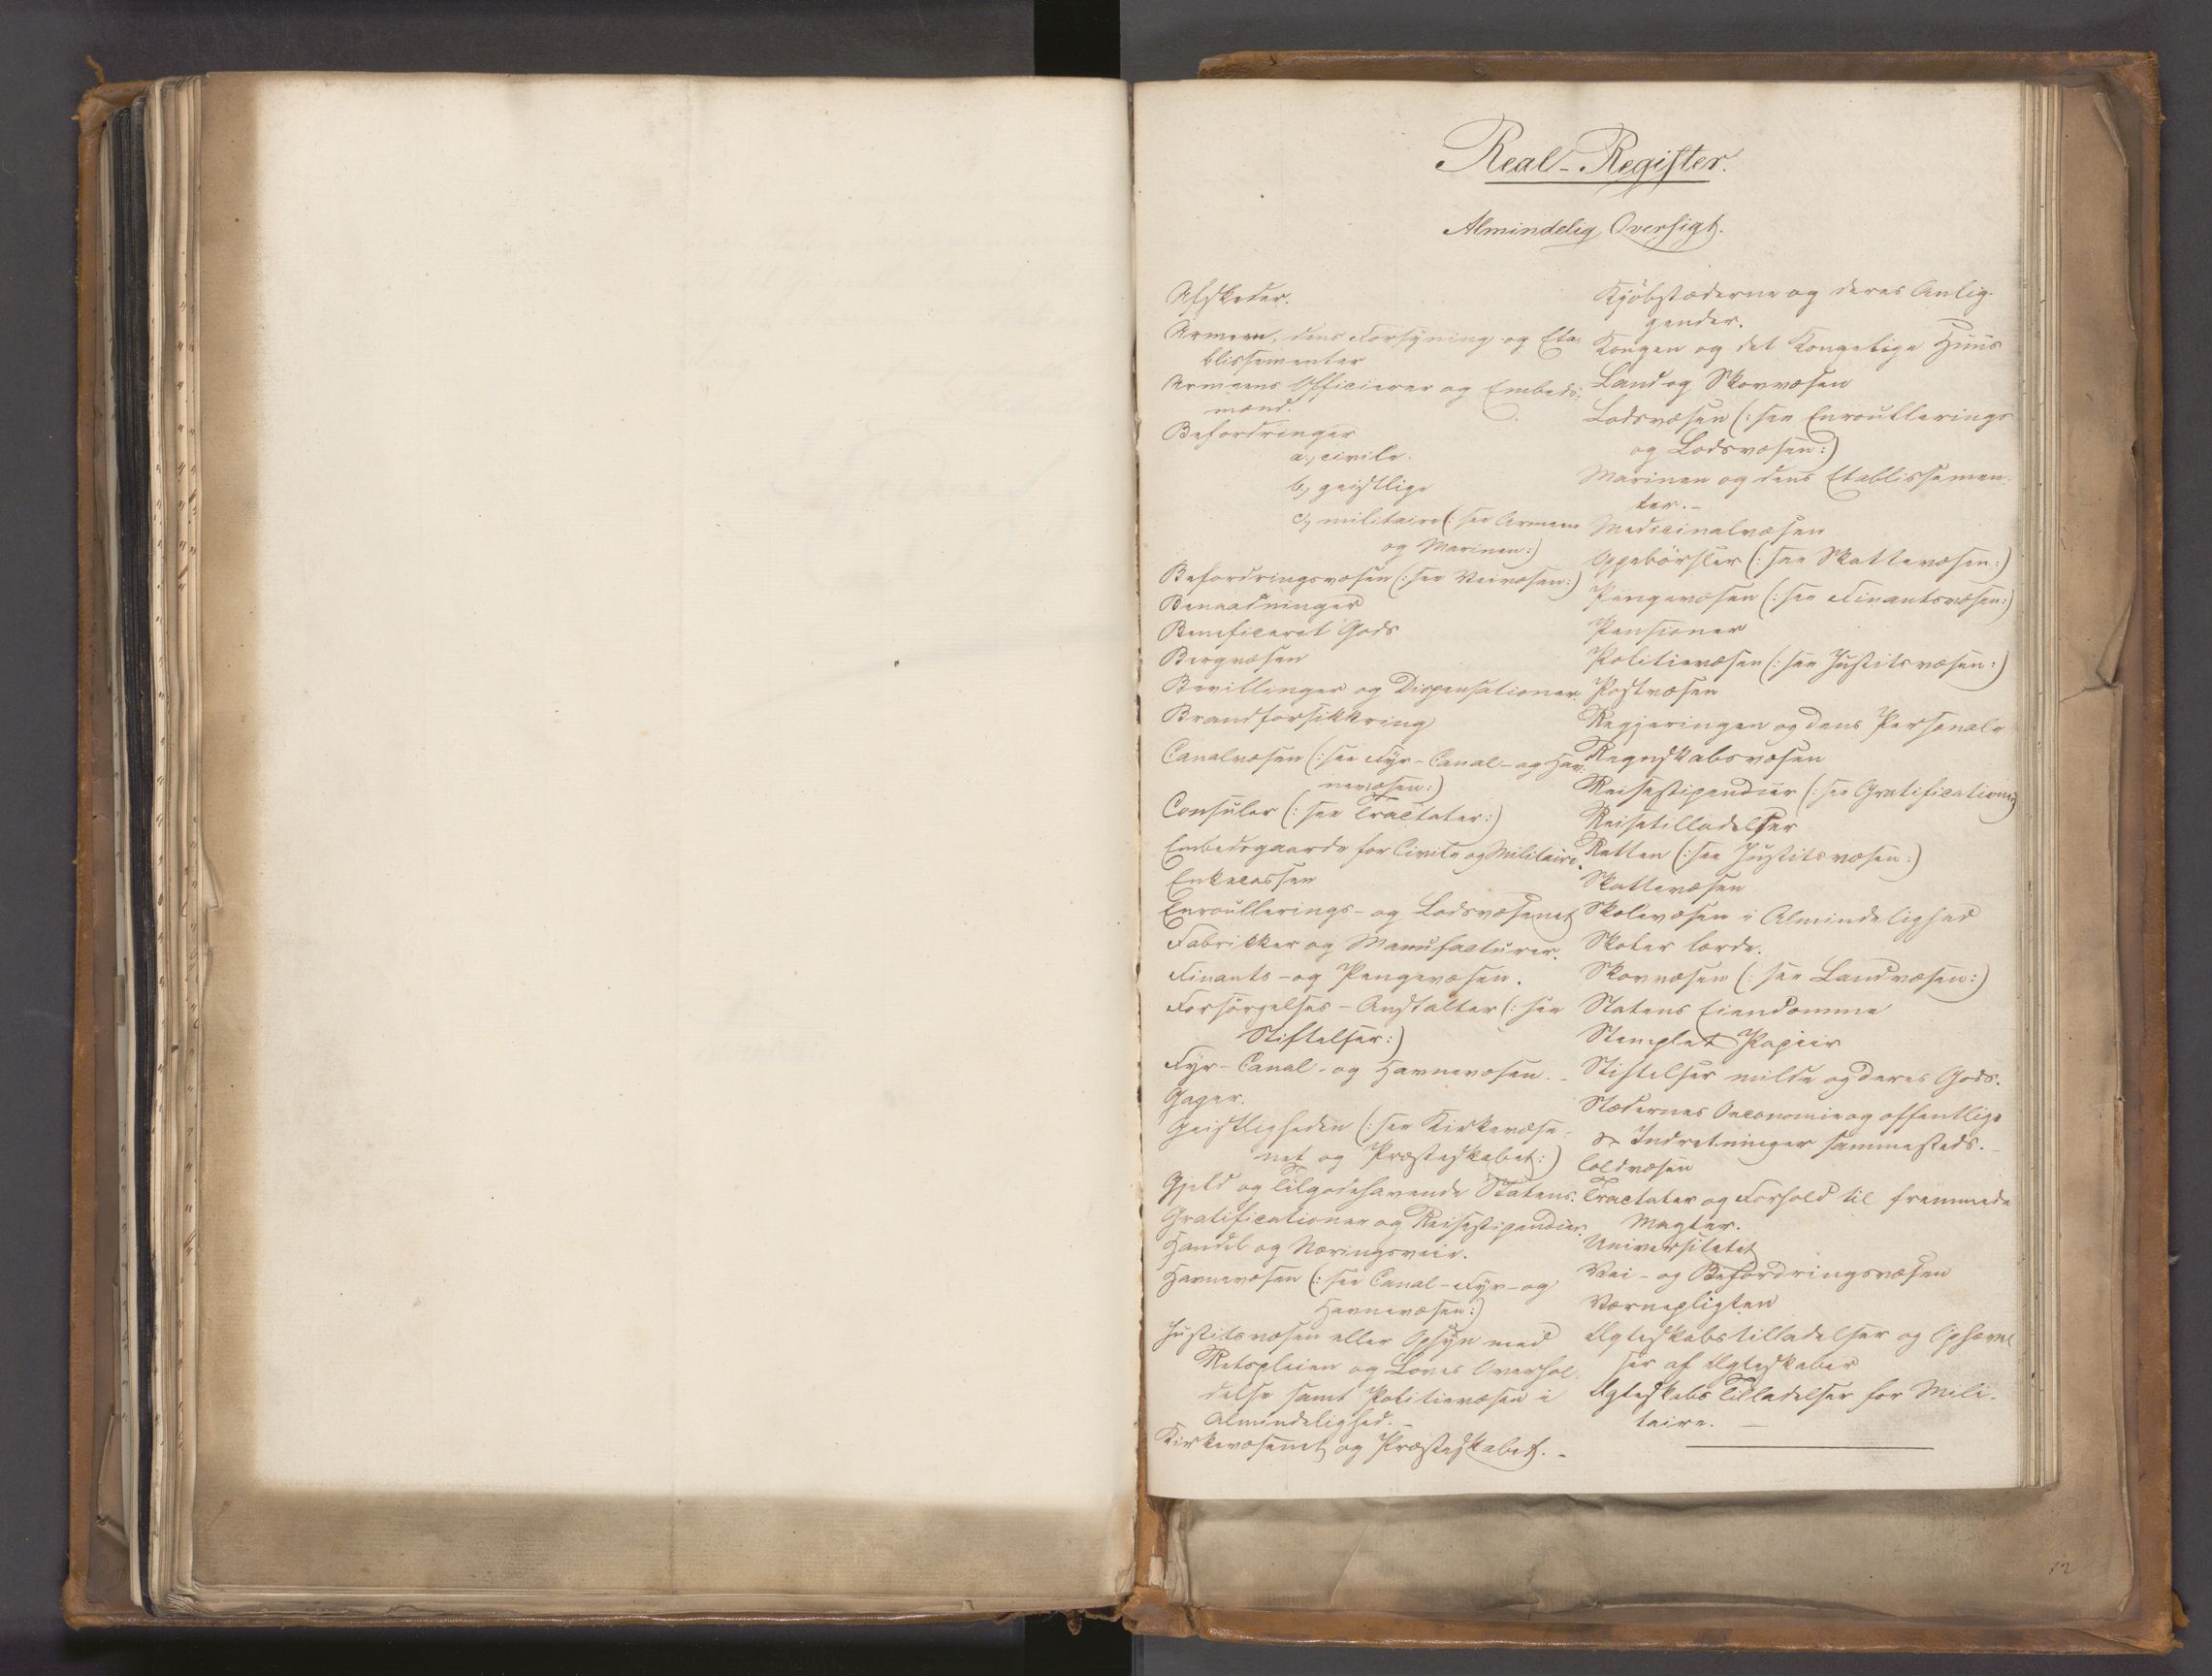 Real-Register.
Almindelig Oversigt.
Afskeder.
Armeen, dens Forsyning og Eta-
blissementer
Armeens Officierer og Embeds-
mænd.
Befordringer
a, civile.
b, geistlige
c, militaire (: see Armeen
og Marinen:)
Befordringsvæsen (: see Veivæsen:)
Benaadninger
Beneficeret Gods
Bergvæsen
Bevillinger og Dispensationer.
Brandforsikkring
Canalvæsen (: see Fyr-Canal-og Hav-
nevæsen:)
Consuler (: see Tractater:)
Embedsgaarde for Civile og Militaire.
Enkecassen
Enroullerings- og Lodsvæsenet
Fabrikker og Manufacturer.
Finants-og Pengevæsen.
Forsörgelses-Anstalter (: see
Stiftelser:)
Fyr-Canal-og Havnevæsen. -
Gager.
Geistligheden (: see Kirkevæse-
net og Præsteskabet:)
Gjeld og Tilgodehavende Statens.
Gratificationer og Reisestipendier.
Handel og Næringsveie.
Havnevæsen (: see Canal-Fyr-og
Havnevæsen:)
Justitsvæsen eller Opsyn med
Retspleien og Loves Overhol-
delse samt Politievæsen i
Almindelighed. -
Kirkevæsenet og Præsteskabet. -
Kjöbstæderne og deres Anlig-
gender.
Kongen og det Kongelige Huus
Land og Skovvæsen
Lodsvæsen (: see Enroullerings
og Lodsvæsen:)
Marinen og dens Etablissemen-
ter. -
Medicinalvæsen
Oppebörsler (: see Skattevæsen:)
Pengevæsen (: see Finantsvæsen:)
Pensioner
Politievæsen (: see Justitsvæsen:)
Postvæsen
Regjeringen og dens Personale
Regnskabsvæsen
Reisestipendier (: see Gratificationer)
Reisetilladelser
Retten (: see Justitsvæsen:)
Skattevæsen
Skolevæsen i Almindelighed
Skoler lærde.
Skovvæsen (: see Landvæsen:)
Statens Eiendomme
Stemplet Papiir
Stiftelser milde og deres Gods.
Stædernes Oeconomie og offentlige
Indretninger sammesteds. -
Toldvæsen
Tractater og Forhold til fremmede
Magter.
Universitetet
Vei- og Befordringsvæsen
Værnepligten
Ægteskabstilladelser og Ophævel
ser af Ægteskaber
Ægteskabs Tilladelser for Mili-
taire. -
12